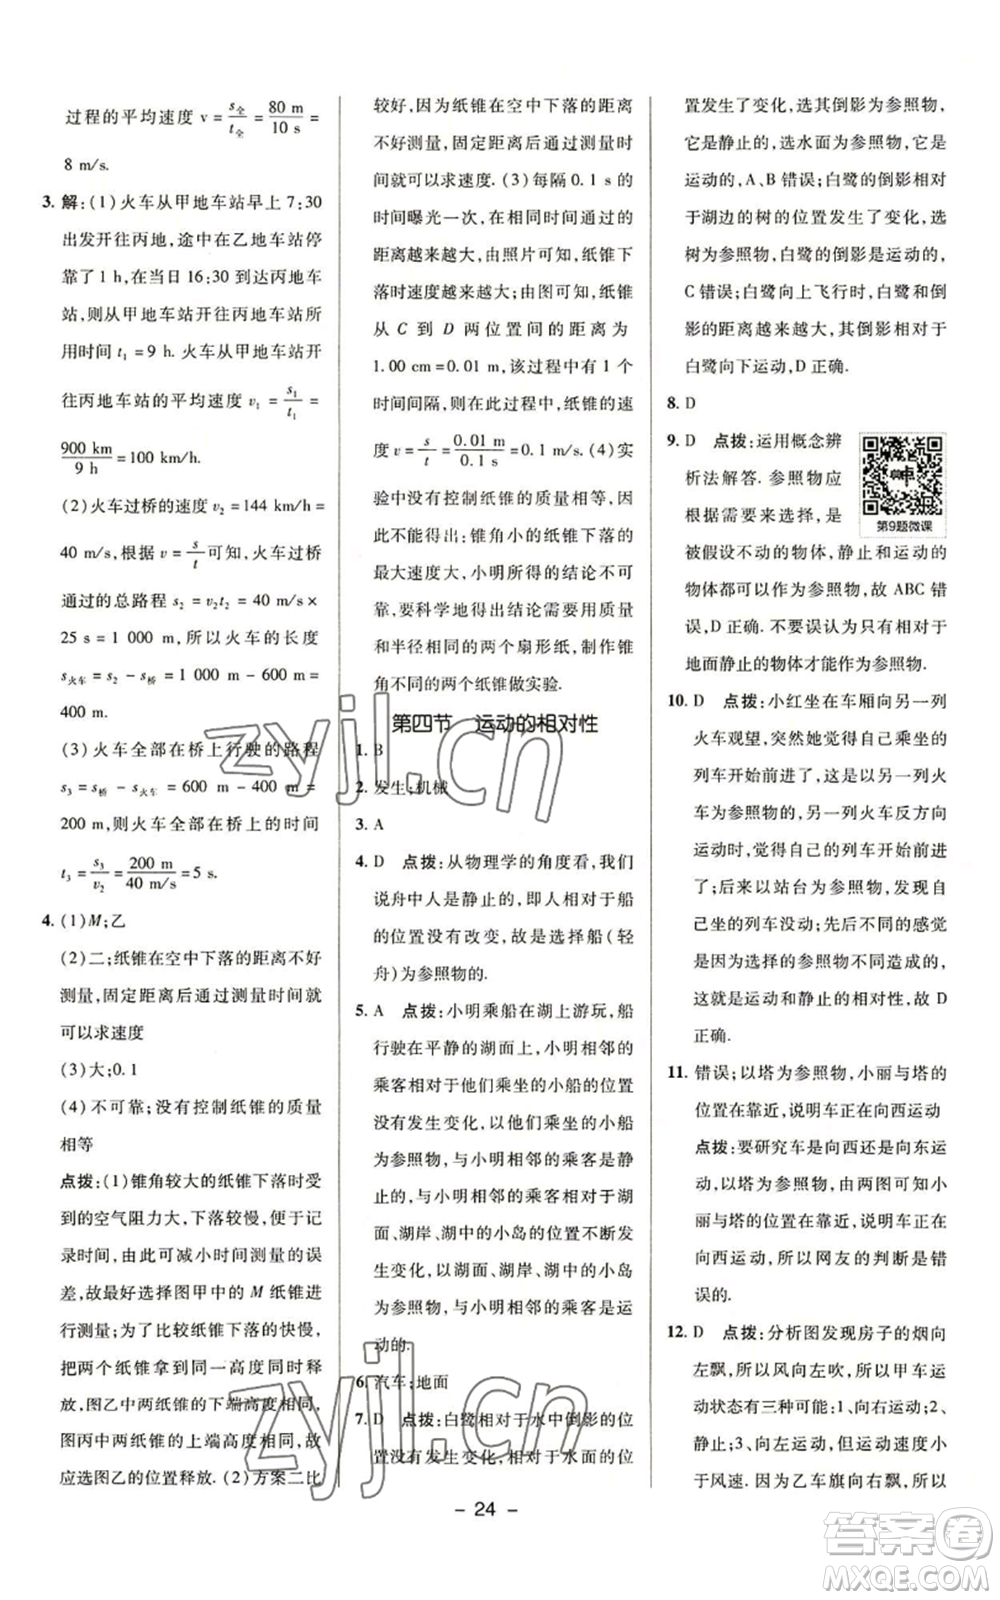 过程的平均速度 v = s全/t全 = 80 m/10 s =
8 m/s.
3. 解:(1)火车从甲地车站早上 7:30
出发开往丙地,途中在乙地车站停
靠了 1 h,在当日 16:30 到达丙地车
站,则从甲地车站开往丙地车站所
用时间 t₁ = 9 h. 火车从甲地车站开
往丙地车站的平均速度 v₁ = s₁/t₁ =
900 km/9 h = 100 km/h.
(2)火车过桥的速度 v₂ = 144 km/h =
40 m/s,根据 v = s/t 可知,火车过桥
通过的总路程 s₂ = v₂t₂ = 40 m/s ×
25 s = 1 000 m,所以火车的长度
s火车 = s₂ − s桥 = 1 000 m − 600 m =
400 m.
(3)火车全部在桥上行驶的路程
s₃ = s桥 − s火车 = 600 m − 400 m =
200 m,则火车全部在桥上的时间
t₃ = s₃/v₂ = 200 m/40 m/s = 5 s.
4. (1)M;乙
(2)二;纸锥在空中下落的距离不好
测量,固定距离后通过测量时间就
可以求速度
(3)大;0.1
(4)不可靠;没有控制纸锥的质量
相等
点拨:(1)锥角较大的纸锥下落时受
到的空气阻力大,下落较慢,便于记
录时间,由此可减小时间测量的误
差,故最好选择图甲中的 M 纸锥
进行测量;为了比较纸锥下落的快慢,
把两个纸锥拿到同一高度同时释
放,图乙中两纸锥的下端高度相同,
图丙中两纸锥的上端高度相同,故
应选图乙的位置释放.(2)方案二比
较好,因为纸锥在空中下落的距离
不好测量,固定距离后通过测量时
间就可以求速度.(3)每隔 0.1 s 的
时间曝光一次,在相同时间通过的
距离越来越大,由照片可知,纸锥下
落时速度越来越大;由图可知,纸锥
从 C 到 D 两位置间的距离为
1.00 cm = 0.01 m,该过程中是一个
时间间隔,则在此过程中,纸锥的速
度 v = s/t = 0.01 m/0.1 s = 0.1 m/s.(4)实
验中没有控制纸锥的质量相等,不
能得出:锥角小的纸锥下落时的
最大速度大,小明的结论不可
靠,要科学地得出结论需要用质量
和半径相同的两个扇形纸,制作锥
角不同的两个纸锥做实验.
第四节 运动的相对性
1. B
2. 发生;机械
3. A
4. D 点拨:从物理学的角度看,我们
说舟中人是静止的,即人相对于船
的位置没有改变,故是选择船(轻
舟)为参照物的.
5. A 点拨:小明乘船在湖上游玩,船
行驶在平静的湖面上,小明相邻的
乘客相对于他们乘坐的小船的位置
没有发生变化,以他们乘坐的小船
为参照物,与小明相邻的乘客是静
止的,与小明相邻的乘客相对于湖
面、湖岸、湖中的小岛的位置不断发
生变化,以湖面、湖岸、湖中的小岛
为参照物,与小明相邻的乘客是运
动的.
6. 汽车;地面
7. D 点拨:白鹭相对于水中倒影的位
置没有发生变化,相对于水面的位
置发生了变化,选其倒影为参照物,
它是静止的,选水面为参照物,它是
运动的,A、B 错误;白鹭的倒影相对
于湖边的树的位置发生了变化,选
树为参照物,白鹭的倒影是运动的,
C 错误;白鹭向上飞行时,白鹭和倒
影的距离越来越大,其倒影相对于
白鹭向下运动,D 正确.
8. D
9. D 点拨:运用概念辨
析法解答. 参照物应
根据需要来选择,是
第9题微课
被假设不动的物体,静止和运动的
物体都可以作为参照物,故 ABC 错
误,D 正确. 不要误认为只有相对于
地面静止的物体才能作为参照物.
10. D 点拨:小红坐在车厢向另一列
火车观望,突然她觉得自己乘坐的
列车开始前进了,这是以另一列火
车为参照物,另一列火车反方向
运动时,会觉得自己的列车开始前
进了;后来以站台为参照物,发现自
己坐的列车没动;先后不同的感觉是
因为选择的参照物不同造成的,
这就是运动和静止的相对性,故 D
正确.
11. 错误;以塔为参照物,小丽与塔的
位置在靠近,说明车正在向西运动
点拨:要研究车是向西还是向东运
动,以塔为参照物,由两图可知小
丽与塔的位置在靠近,说明车正在
向西运动,所以网友的判断是错
误的.
12. D 点拨:分析图发现房子的烟向
左飘,所以风向左吹,所以甲车运
动状态有三种可能:1、向右运动;2、
静止;3、向左运动,但运动速度小
于风速. 因为乙车旗向右飘,所以
- 24 -
zyjl.cn
zyjl.cn
答案圈
MXQE.COM